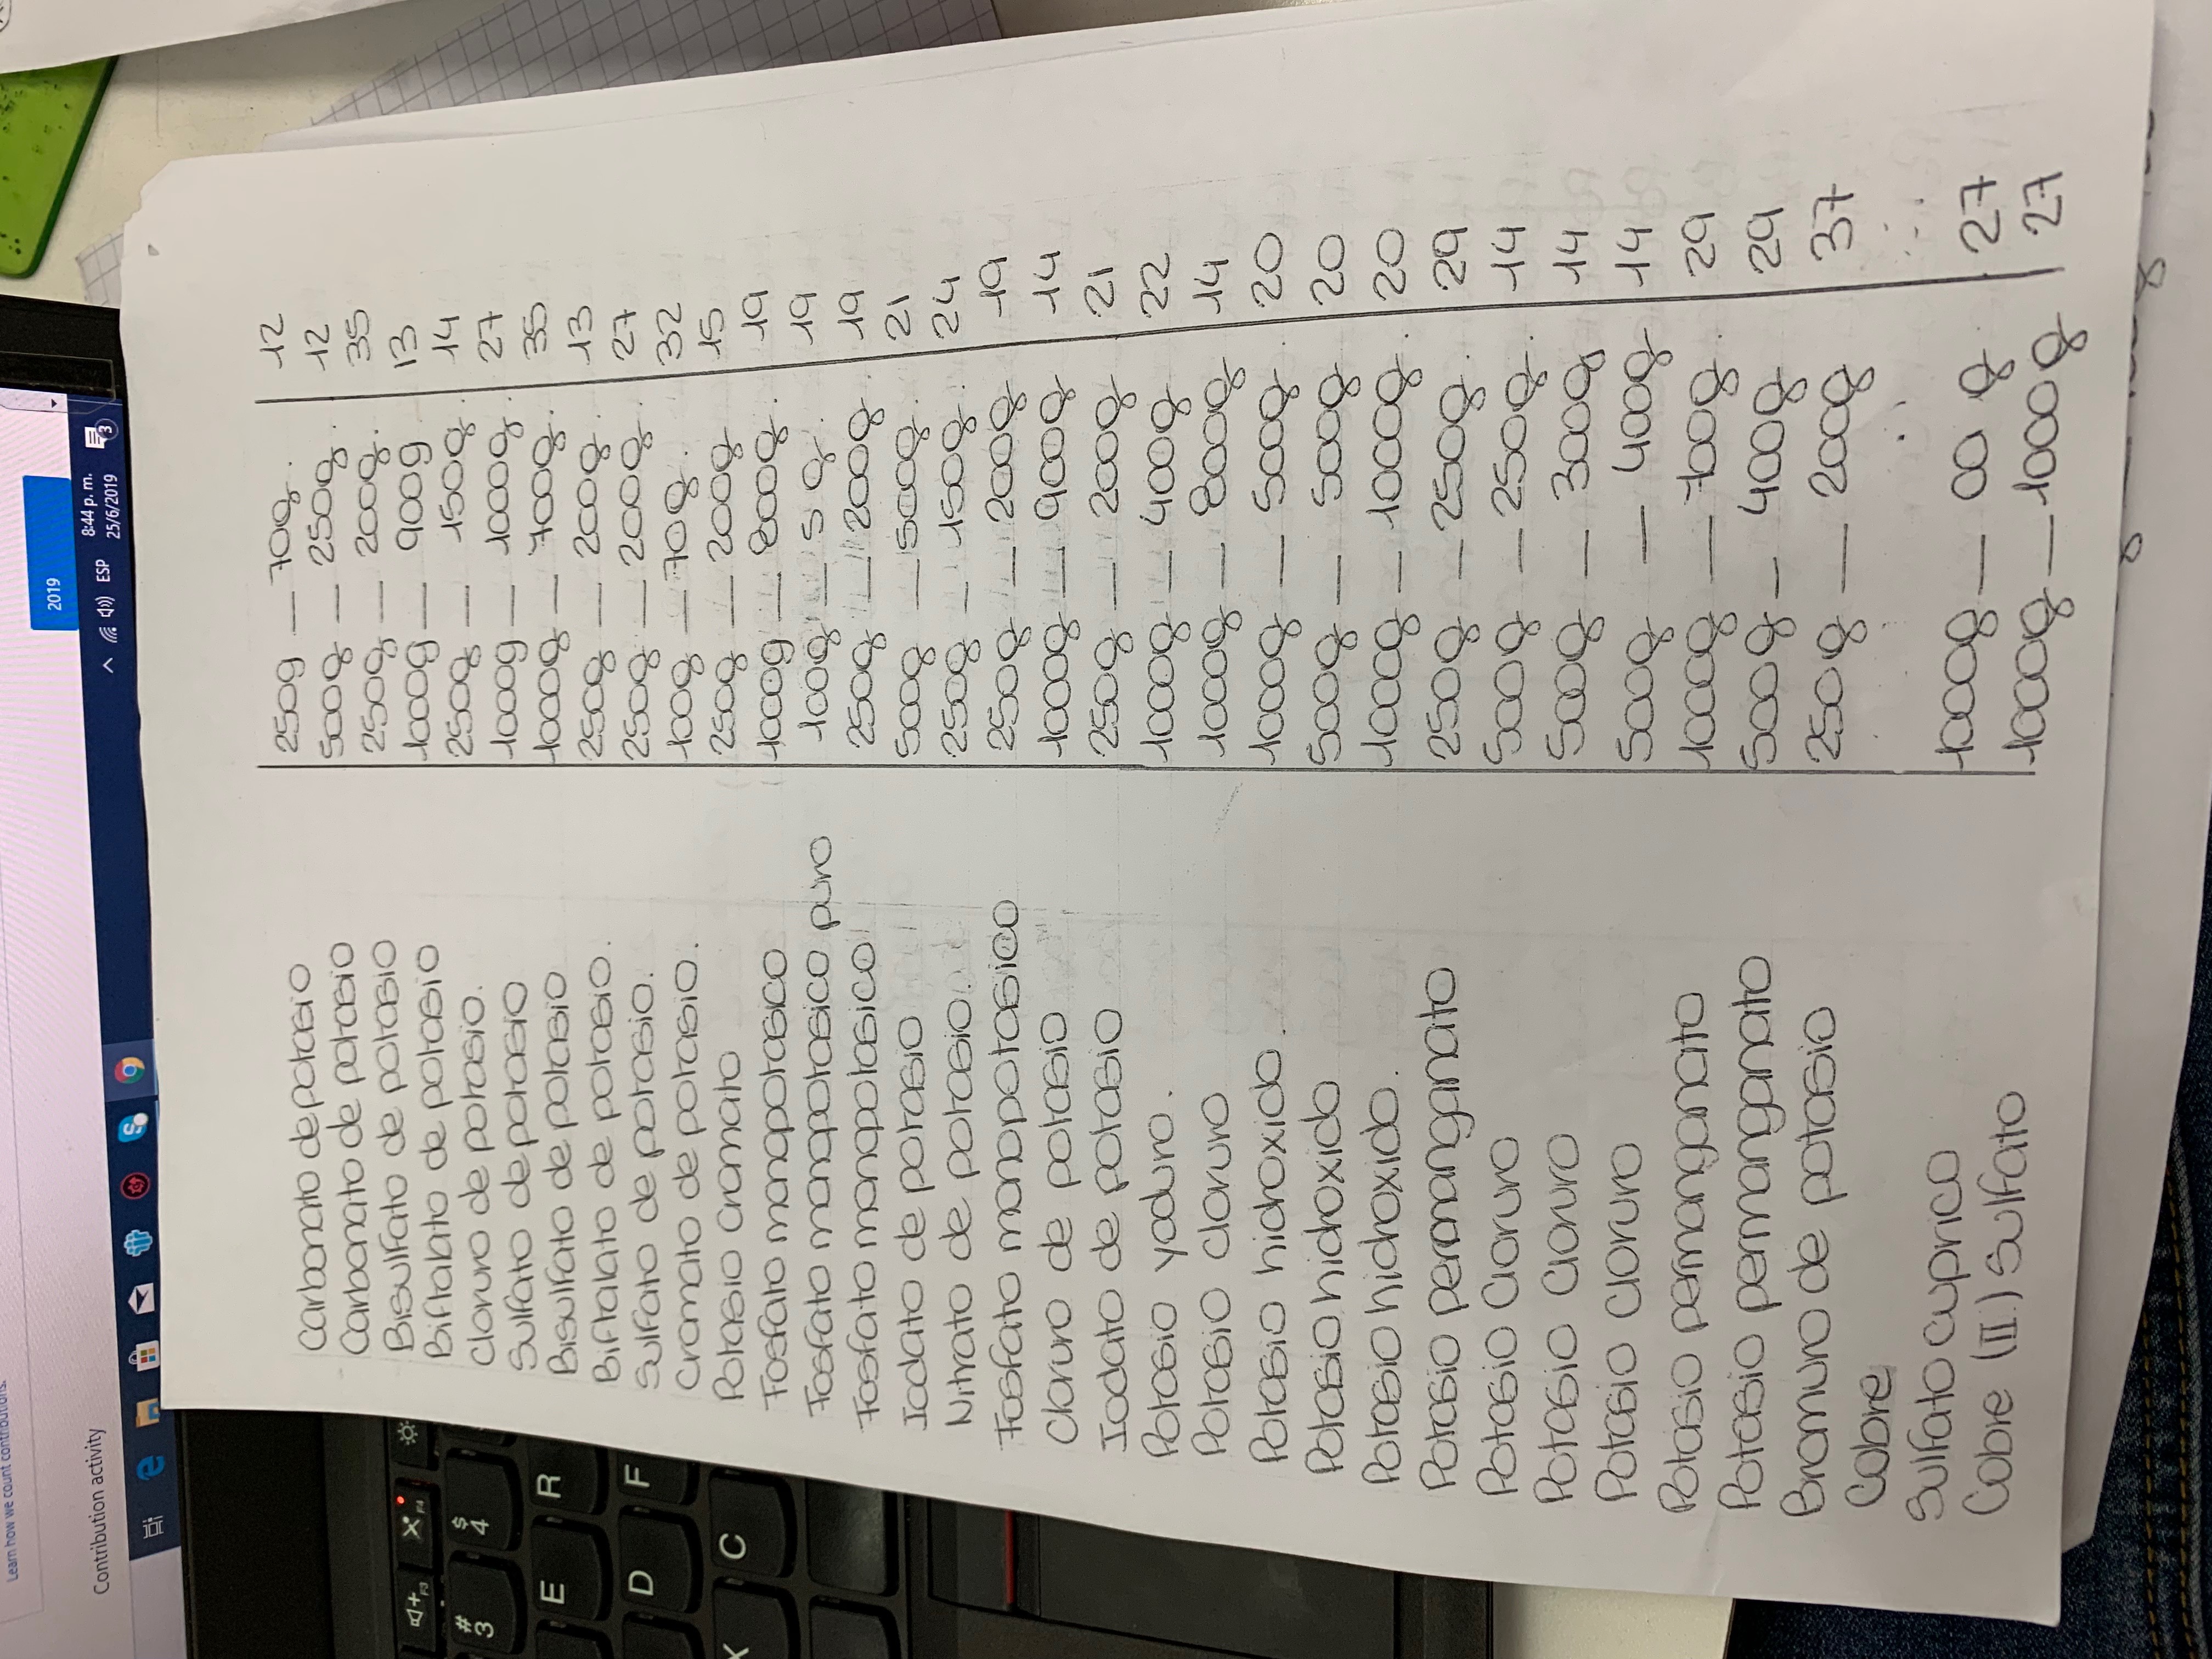 Learn how we count contributions.
2019
Contribution activity
8:44 p. m.
ESP
25/6/2019
3
Carbonato de potasio 250g — 70g. 12
Carbonato de potasio 500g — 250g. 12
Bisulfato de potasio 250g — 200g. 35
Biftalato de potasio 1000g — 900g 13
Cloruro de potasio. 250g — 150g. 14
Sulfato de potasio 1000g — 1000g. 27
Bisulfato de potasio 1000g — 700g. 35
Biftalato de potasio. 250g — 200g. 13
Sulfato de potasio. 250g — 200g. 27
Cromato de potasio. 100g — 70g. 32
Potasio Cromato 250g — 200g 15
Fosfato monopotasico 1000g — 800g. 19
Fosfato monopotasico puro 100g — 5 g. 19
Fosfato monopotasico 250g — 200g. 19
Iodato de potasio 500g — 500g. 21
Nitrato de potasio. 250g — 150g. 24
Fosfato monopotasico 250g — 200g 19
Cloruro de potasio 1000g — 900g 14
Iodato de potasio 250g — 200g 21
Potasio yoduro. 1000g — 400g 22
Potasio cloruro 1000g — 800g 14
Potasio hidroxido. 1000g — 500g. 20
Potasio hidroxido 500g — 500g 20
Potasio hidroxido. 1000g — 1000g. 20
Potasio permanganato 250g — 250g. 29
Potasio Cloruro 500g — 250g. 14
Potasio Cloruro 500g — 300g 14
Potasio Cloruro 500g — 400g 14
Potasio permanganato 1000g — 700g. 29
Potasio permanganato 500g — 400g 29
Bromuro de potasio 250g — 200g 37
Cobre
Sulfato cuprico 1000g — g 27
Cobre (II) Sulfato 1000g — 1000g 27
# 3
F3
$ 4
F4
E
R
D
F
X
C